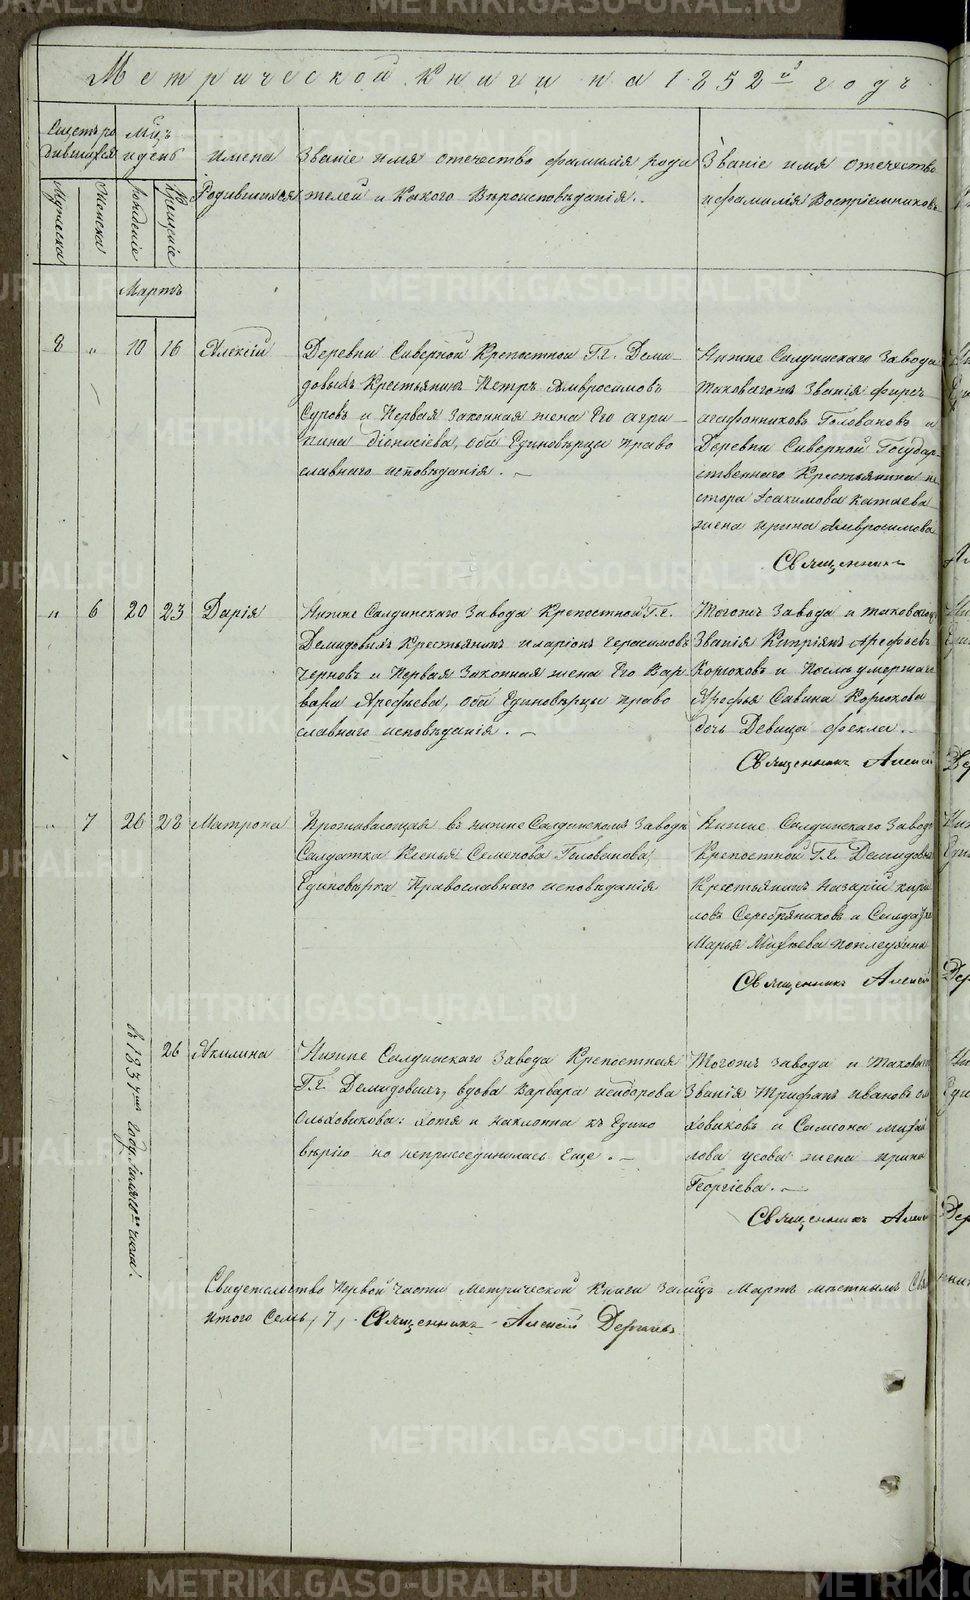 Метрической книги на 1852й годъ
Счетъ ро
дившихся
Мцъ
и день
имена
Родившихся
Званіе имя отечество фамилія роди
телей и какого вѣроисповѣданія.
Званіе имя отечество
и фамилія воспріемниковъ
Мужеска
Женска
рожденіе
крещеніе
Мартъ
8 " 10 16 Алексій
Деревни Сиверной Крепостной Г.г. Деми-
довыхъ Крестьянинъ Петръ Амвросимовъ
Суровъ и Первая Законная жена Его агри
пина діонисіева, оба Единоверцы право
славнаго исповѣданія.
Нижне Салдинскаго Завода
таковагожъ Званія фирсъ
агафонниковъ Головановъ и
Деревни Сиверной Государ-
ственнаго Крестьянина не
стора Іоакимова Катаева
жена ирина Амвросимова
Священникъ
" 6 20 23 Дарія
Нижне Салдинскаго Завода Крепостной Г.г.
Демидовыхъ Крестьянинъ иларіонъ герасимовъ
Черновъ и Первая Законная жена Его Вар
вара Арефьева, оба Единовѣрцы право
славнаго исповѣданія.
Тогожъ Завода и таковагожъ
Званія Кипріянъ Арефьевъ
Корюковъ и Послѣ умершаго
Арефья Савина Корюкова
дочь Девица фекла.
Священникъ Алексій
" 7 26 28 Матрона
Проживающая въ нижне Салдинскомъ Заводѣ
Салдатка Ксенья Семенова Голованова,
Единовѣрка Православнаго исповѣданія
Нижне Салдинскаго Завода
Крепостной Г.г. Демидовых
Крестьянинъ Назарій кири
ловъ Серебряниковъ и Салдатка
Марья Михѣева поплеухина
Священникъ Алексій
въ 1837мъ году, іюля 10го числа.
26 Акилина
Нижне Салдинскаго Завода Крепостная
Г.г. Демидовыхъ, вдова Варвара исидорова
Ольховикова: хотя и наклонна къ Едино
вѣрію но неприсоединилась Еще.
Тогожъ завода и Таковаго
Званія Трифанъ ивановъ ол
ховиковъ и Самсона михай
лова усова жена ирина
Георгіева.
Священникъ Алексій
Свидетельство Первой части метрической Книги За мцъ Мартъ
итого Семь, 7, Священникъ Алексій Дерябинъ
METRIKI.GASO-URAL.RU